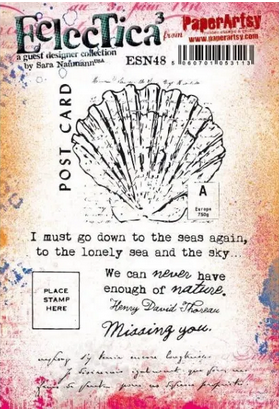 EcLecTica³
from
PaperArtsy
www.paperartsy.com
a guest designer collection
by Sara Naumann USA
ESN48
5 060701 053113
POST CARD
A
Europe
750g
I must go down to the seas again,
to the lonely sea and the sky...
We can never have
enough of nature.
Henry David Thoreau
PLACE
STAMP
HERE
Missing you.